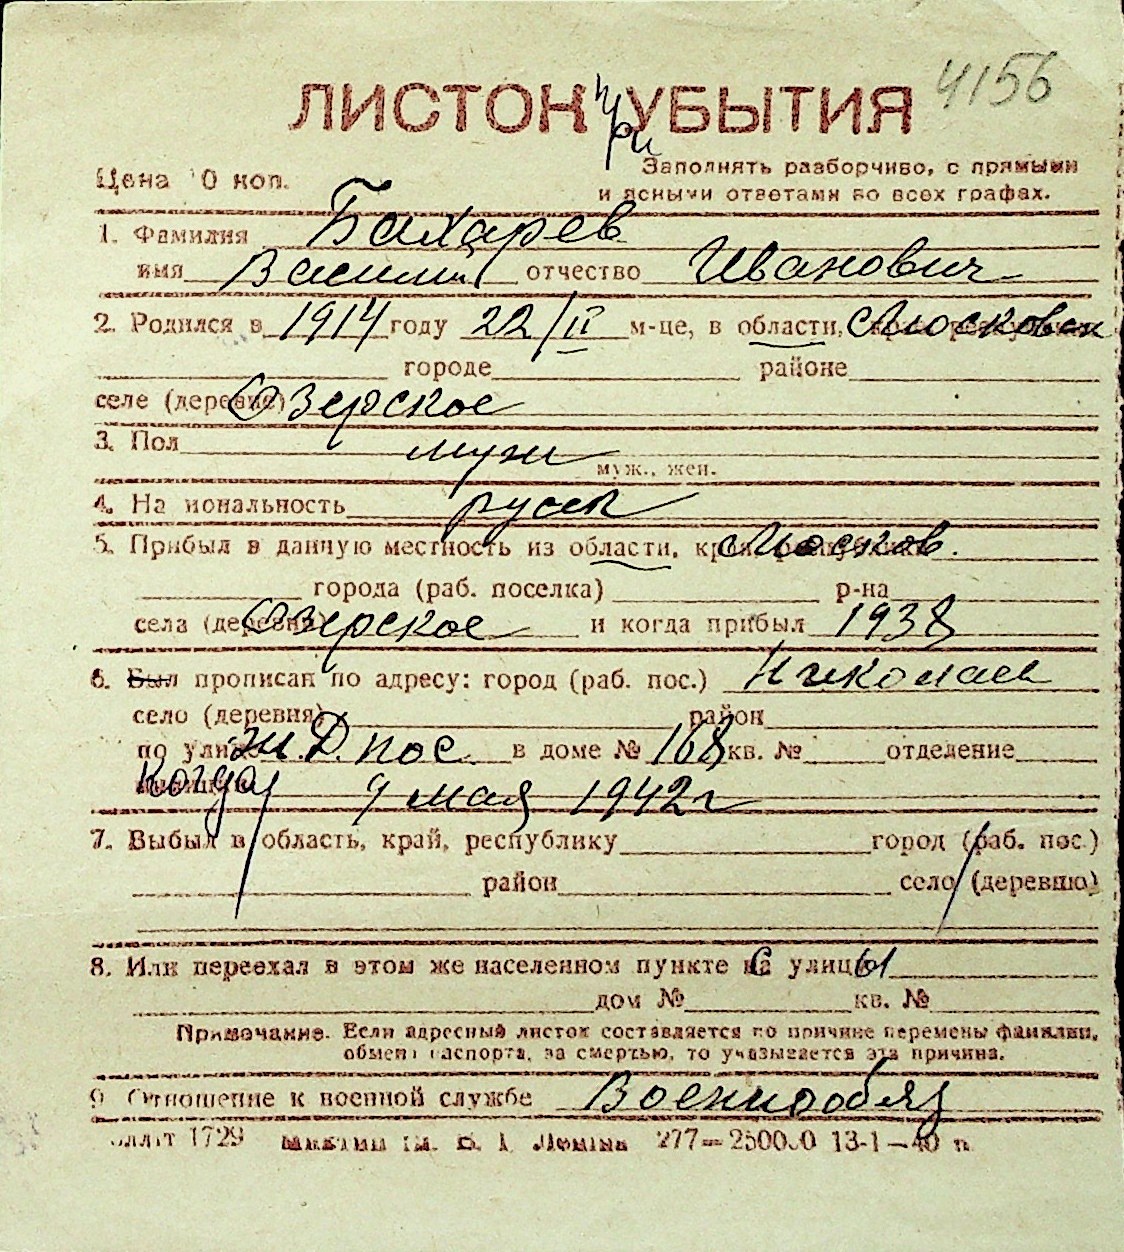 4156
ЛИСТОК при УБЫТИЯ
Цена 10 коп.
Заполнять разборчиво, с прямыми
и ясными ответами во всех графах.
1. Фамилия Бахарев
имя Василий отчество Иванович
2. Родился в 1914 году 22/II м-це, в области, Московск
городе районе
селе (деревне) Озерское
3. Пол муж
муж., жен.
4. Национальность русск
5. Прибыл в данную местность из области, края, Москов.
города (раб. поселка) р-на
села (деревни) Озерское и когда прибыл 1938
6. Был прописан по адресу: город (раб. пос.) Николаев
село (деревня) район
по улице Ж.Д. пос. в доме № 168 кв. № отделение
когда 9 мая 1942 г
7. Выбыл в область, край, республику город (раб. пос.)
район село (деревню)
8. Или переехал в этом же населенном пункте с улицы
дом № кв. №
Примечание. Если адресный листок составляется по причине перемены фамилии,
обмена паспорта, за смертью, то указывается эта причина.
9. Отношение к военной службе Военнообяз
1729 277—250000 13-1—40